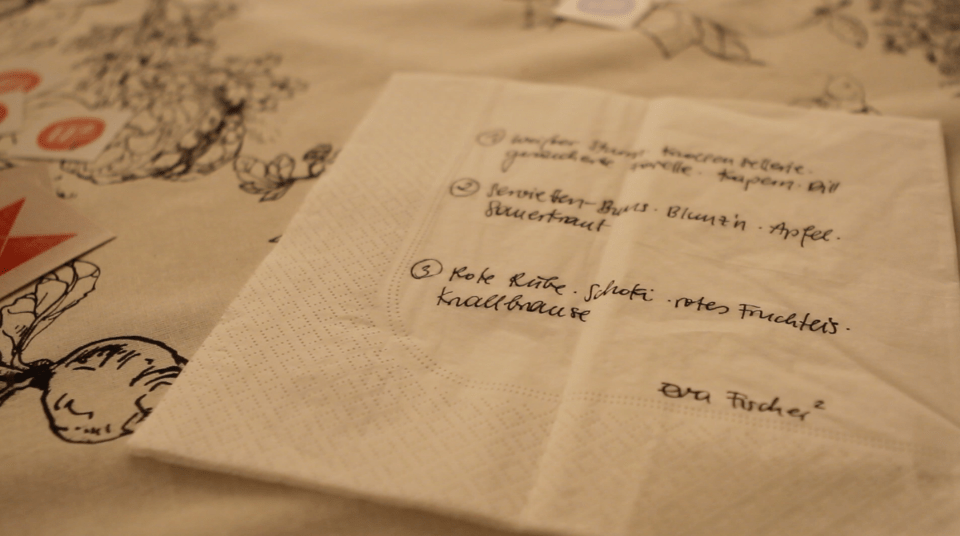 ① weißer Knollensellerie.
geräucherte Forelle. Kapern. Dill
② Servietten- . Blunz'n . Apfel.
Sauerkraut
③ Rote Rübe . Schoki . rotes Fruchteis.
Knallbrause
Eva Fischer²